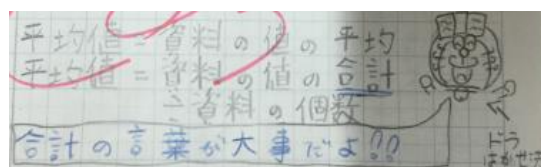 平均値=資料の値の平均
平均値=資料の値の合計
÷資料の個数
合計の言葉が大事だよ!!
ドラ